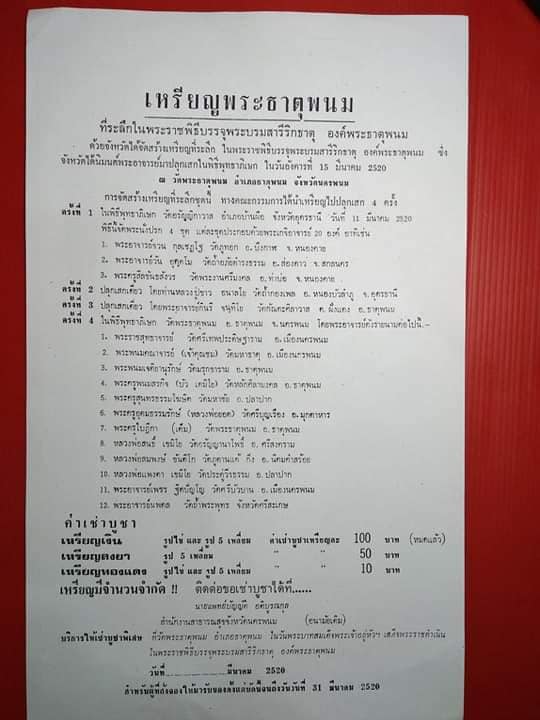 เหรียญพระธาตุพนม
ที่ระลึกในพระราชพิธีบรรจุพระบรมสารีริกธาตุ องค์พระธาตุพนม
ด้วยจังหวัดได้จัดสร้างเหรียญที่ระลึก ในพระราชพิธีบรรจุพระบรมสารีริกธาตุ องค์พระธาตุพนม ซึ่ง
จังหวัดได้นิมนต์พระอาจารย์มาปลุกเสกในพิธีพุทธาภิเษก ในวันอังคารที่ 15 มีนาคม 2520
ณ วัดพระธาตุพนม อำเภอธาตุพนม จังหวัดนครพนม
การจัดสร้างเหรียญที่ระลึกชุดนี้ ทางคณะกรรมการได้นำเหรียญไปปลุกเสก 4 ครั้ง
ครั้งที่ 1 ในพิธีพุทธาภิเษก วัดอรัญญิกาวาส อำเภอบ้านผือ จังหวัดอุดรธานี วันที่ 11 มีนาคม 2520
พิธีนี้จัดพระนั่งปรก 4 ชุด แต่ละชุดประกอบด้วยพระเกจิอาจารย์ 20 องค์ อาทิเช่น
1. พระอาจารย์จวน กุลเชฏโฐ วัดภูทอก อ.บึงกาฬ จ.หนองคาย
2. พระอาจารย์วัน อุตฺตโม วัดถ้ำอภัยดำรงธรรม อ.ส่องดาว จ.สกลนคร
3. พระครูสีลขันธสังวร วัดพระงานศรีมงคล อ.ท่าบ่อ จ.หนองคาย
ครั้งที่ 2 ปลุกเสกเดี่ยว โดยท่านหลวงปู่ขาว อนาลโย วัดถ้ำกองเพล อ.หนองบัวลำภู จ.อุดรธานี
ครั้งที่ 3 ปลุกเสกเดี่ยว โดยพระอาจารย์กินรี จนฺทิโย วัดกัณตะศิลาวาส ต.ฝั่งแดง อ.ธาตุพนม
ครั้งที่ 4 ในพิธีพุทธาภิเษก วัดพระธาตุพนม อ.ธาตุพนม จ.นครพนม โดยพระอาจารย์ดังรายนามต่อไปนี้.-
1. พระราชสุทธาจารย์ วัดศรีเทพประดิษฐาราม อ.เมืองนครพนม
2. พระพนมคณาจารย์ (เจ้าคุณชม) วัดมหาธาตุ อ.เมืองนครพนม
3. พระพนมเจติยานุรักษ์ วัดมรุกขาราม อ.ธาตุพนม
4. พระครูพนมสรกิจ (บัว เตมิโย) วัดหลักศิลามงคล อ.ธาตุพนม
5. พระครูสุนทรธรรมโฆษิต วัดมหาชัย อ.ปลาปาก
6. พระครูอุดมธรรมรักษ์ (หลวงพ่อยอด) วัดศรีบุญเรือง อ.มุกดาหาร
7. พระครูใบฎีกา (เต็ม) วัดพระธาตุพนม อ.ธาตุพนม
8. หลวงพ่อสนธิ์ เขมิโย วัดอรัญญานาโพธิ์ อ.ศรีสงคราม
9. หลวงพ่อสมพงษ์ ขันติโก วัดภูดานแต้ กิ่ง อ.นิคมคำสร้อย
10. หลวงพ่อแพงตา เขมิโย วัดประดู่วีรธรรม อ.ปลาปาก
11. พระอาจารย์เพชร ฐิตปัญโญ วัดศรีบัวบาน อ.เมืองนครพนม
12. พระอาจารย์นพดล วัดถ้ำพระพุทธ จังหวัดศรีสะเกษ
ค่าเช่าบูชา
เหรียญเงิน รูปไข่ และ รูป 5 เหลี่ยม ค่าเช่าบูชาเหรียญละ 100 บาท (หมดแล้ว)
เหรียญลงยา รูป 5 เหลี่ยม " " 50 บาท
เหรียญทองแดง รูปไข่ และ รูป 5 เหลี่ยม " " 10 บาท
เหรียญมีจำนวนจำกัด !! ติดต่อขอเช่าบูชาได้ที่.....
นายแพทย์บัญญัติ
สำนักงานสาธารณสุขจังหวัดนครพนม (อนามัยเดิม)
บริการให้เช่าบูชาพิเศษ ที่วัดพระธาตุพนม อำเภอธาตุพนม ในวันพระบาทสมเด็จพระเจ้าอยู่หัวฯ เสด็จพระราชดำเนิน
ในพระราชพิธีบรรจุพระบรมสารีริกธาตุ องค์พระธาตุพนม
วันที่.................มีนาคม 2520
สำหรับผู้ที่สั่งจองให้มารับของตั้งแต่บัดนี้จนถึงวันวันที่ 31 มีนาคม 2520